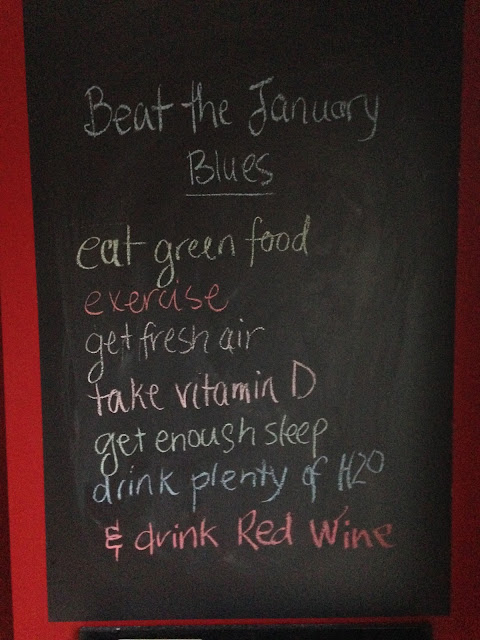 Beat the January
Blues
eat green food
exercise
get fresh air
take vitamin D
get enough sleep
drink plenty of H2O
& drink Red Wine